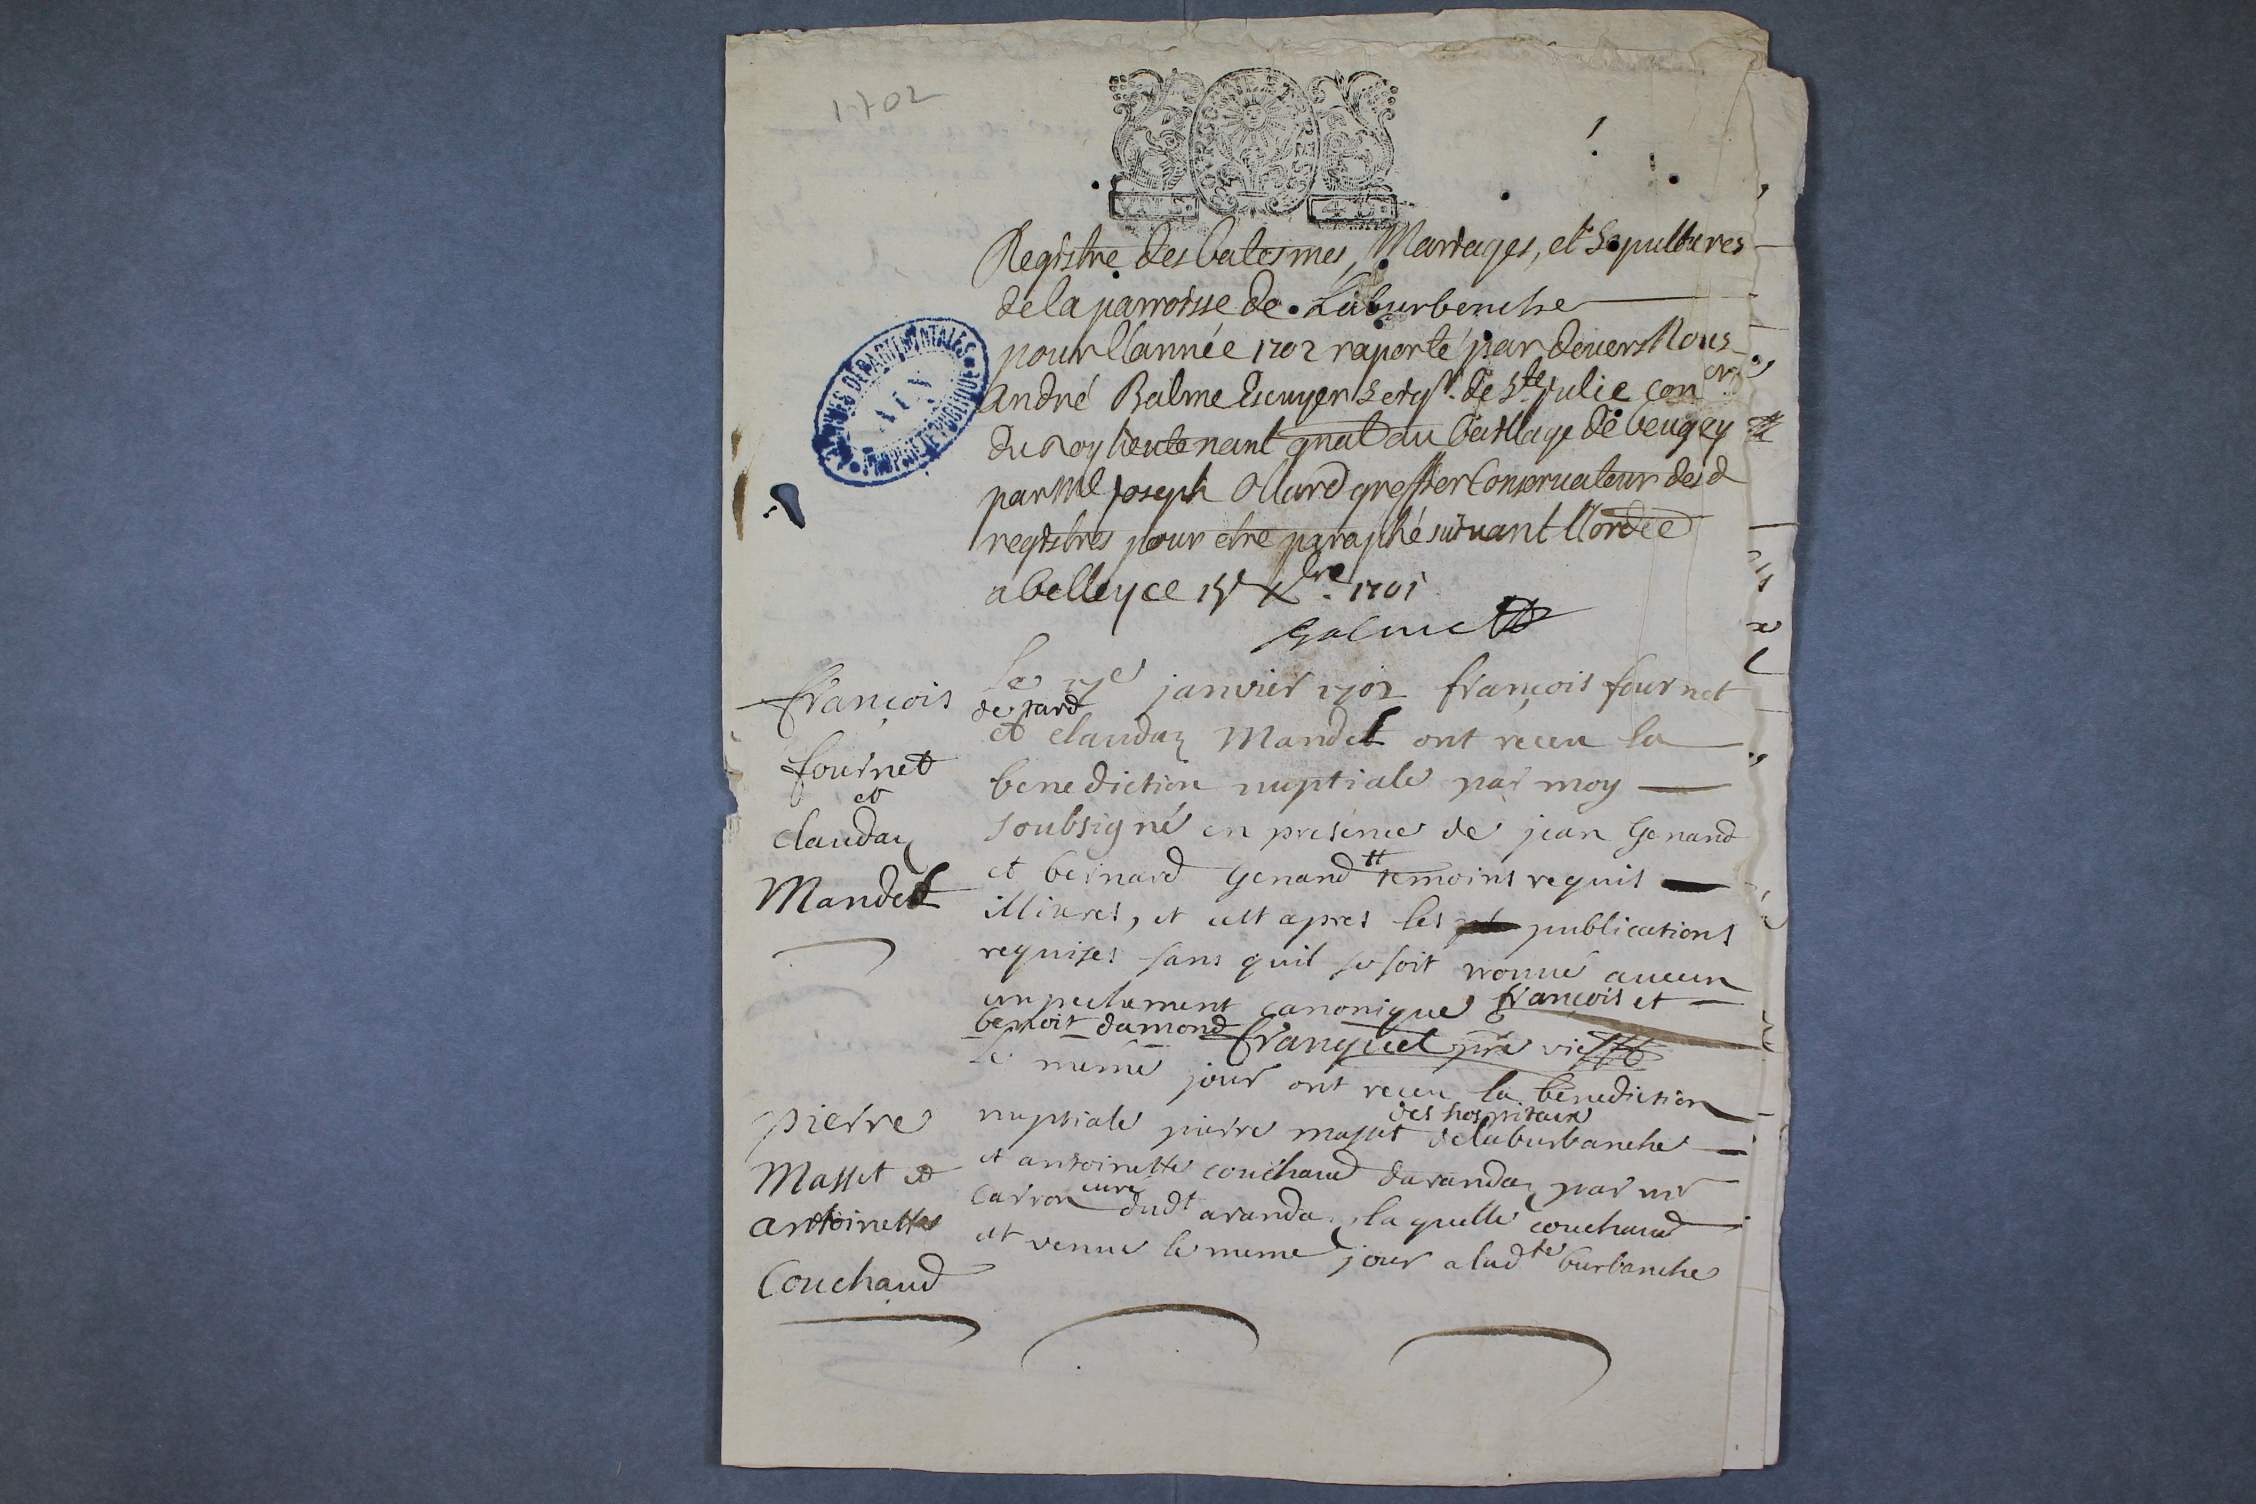 1702
Registre des batesmes, Mariages, et Sepultures
de la parroisse de Laburbenche
pour l'année 1702 raporté par devers Nous
André Balme Escuyer seigr. de Ste Julie con
du Roy lieutenant gnal au bailliage de beugey
par Me Joseph Ollard greffier Conservateur desd
registres pour etre paraphé suivant l'ordce
a belley ce Xbre. 1701
Balme
ARCHIVES DÉPARTEMENTALES
AIN
françois
fournet
et
claudaz
Mandet
Le janvier 1702 françois fournet
de pard
et claudaz Mandet ont receu la
benediction nuptiale par moy
soubsigné en presence de jean Genand
et bernard Genand temoins requis
illitres, et cest apres les publications
requises sans quil se soit trouvé aucun
empechement canonique françois et
benoit damond franquet pre vic
pierre
Masset et
antoinette
Couchaud
le meme jour ont receu la benediction
des hospitaux
nuptiale pierre masset de laburbanche
et antoinette couchaud darandaz par mr
carron curé dudt aranda, laquelle couchaud
est venue le meme jour a ladte burbanche